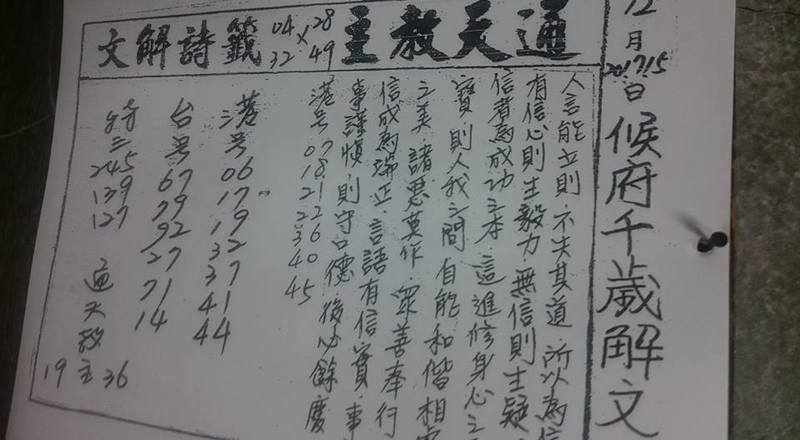 12月 20.17.15日 候府千歲解文
通天教主 28 49 × 04 32 籤詩解文
人言能立則 不失其道 所以為信
有信心則生毅力 無信則生疑
信者為成功之本 這進修身心之
寶 則人我之間 自能和偕相
之美 諸惡莫作 眾善奉行
信成為端正 言語有信實 事
事謹慎 則守口德 後必餘慶
港号 07 18 21 22 36 40 45
港号 06 17 19 32 37 41 44
台号 67 79 92 27 71 14
特三 245 139 127 通天教主
19 36